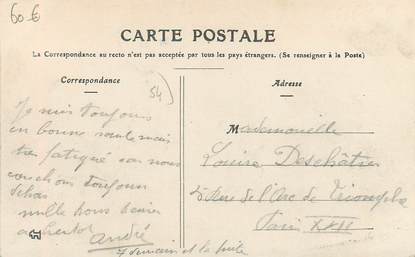 60 €
CARTE POSTALE
La Correspondance au recto n'est pas acceptée par tous les pays étrangers. (Se renseigner à la Poste)
Correspondance
Adresse
54)
Je suis toujours
en bonne santé mais
très fatigué car nous
couchons toujours
dehors
mille bons baisers
a bientot
André
7 demain et la suite
Mademoiselle
Louise Deschâtres
5 Rue de l'Arc de Triomphe
Paris XVII